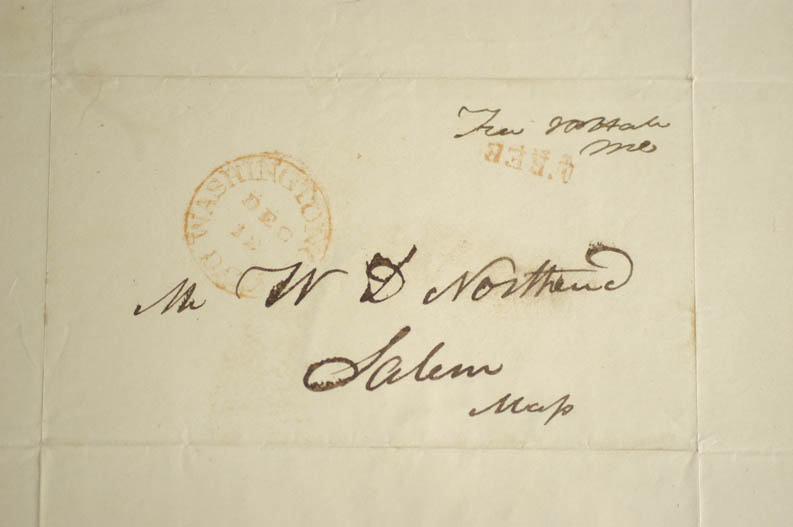 Free
Me
FREE
WASHINGTON
DEC
12
Mr W D Northend
Salem
Mass